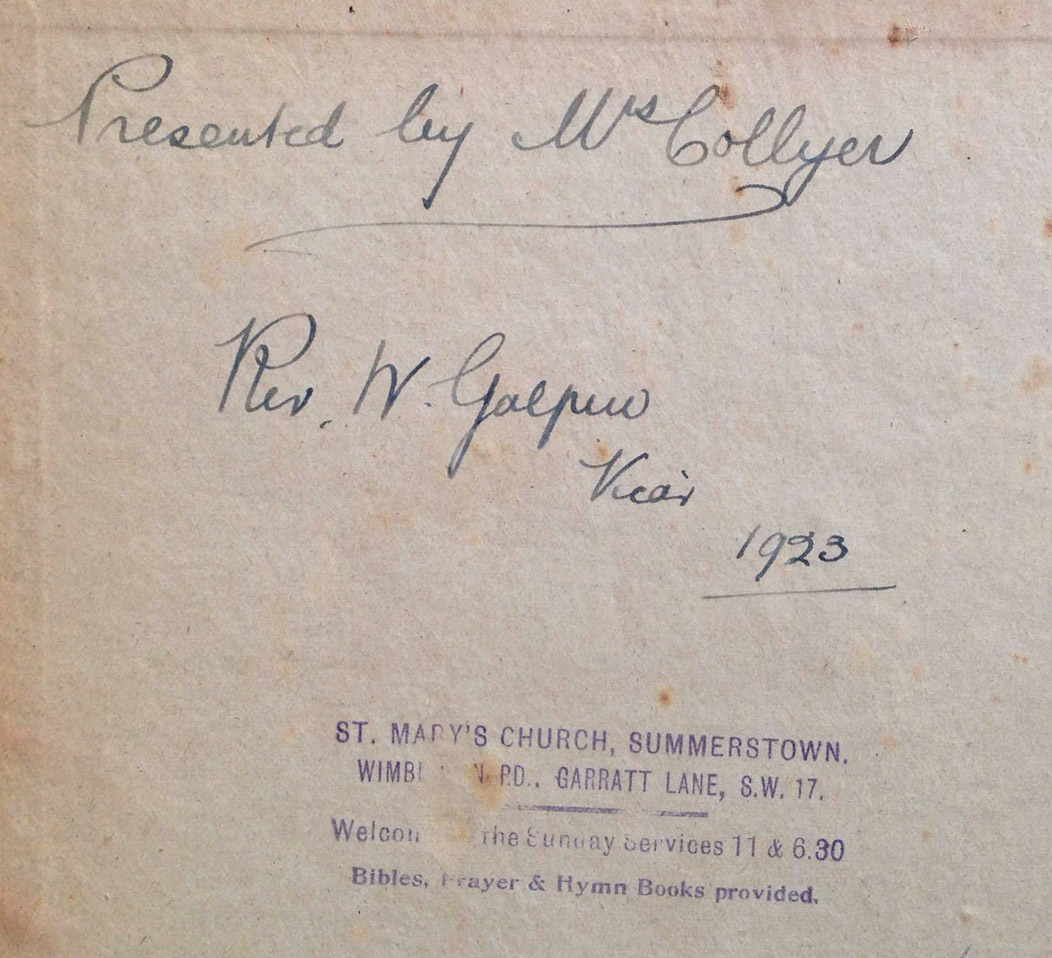 Presented by Mrs Collyer
Rev. W. Galpin
Vicar
1923
ST. MARY'S CHURCH, SUMMERSTOWN.
RD., GARRATT LANE, S.W. 17.
the Sunday Services 11 & 6.30
Bibles, Prayer & Hymn Books provided.